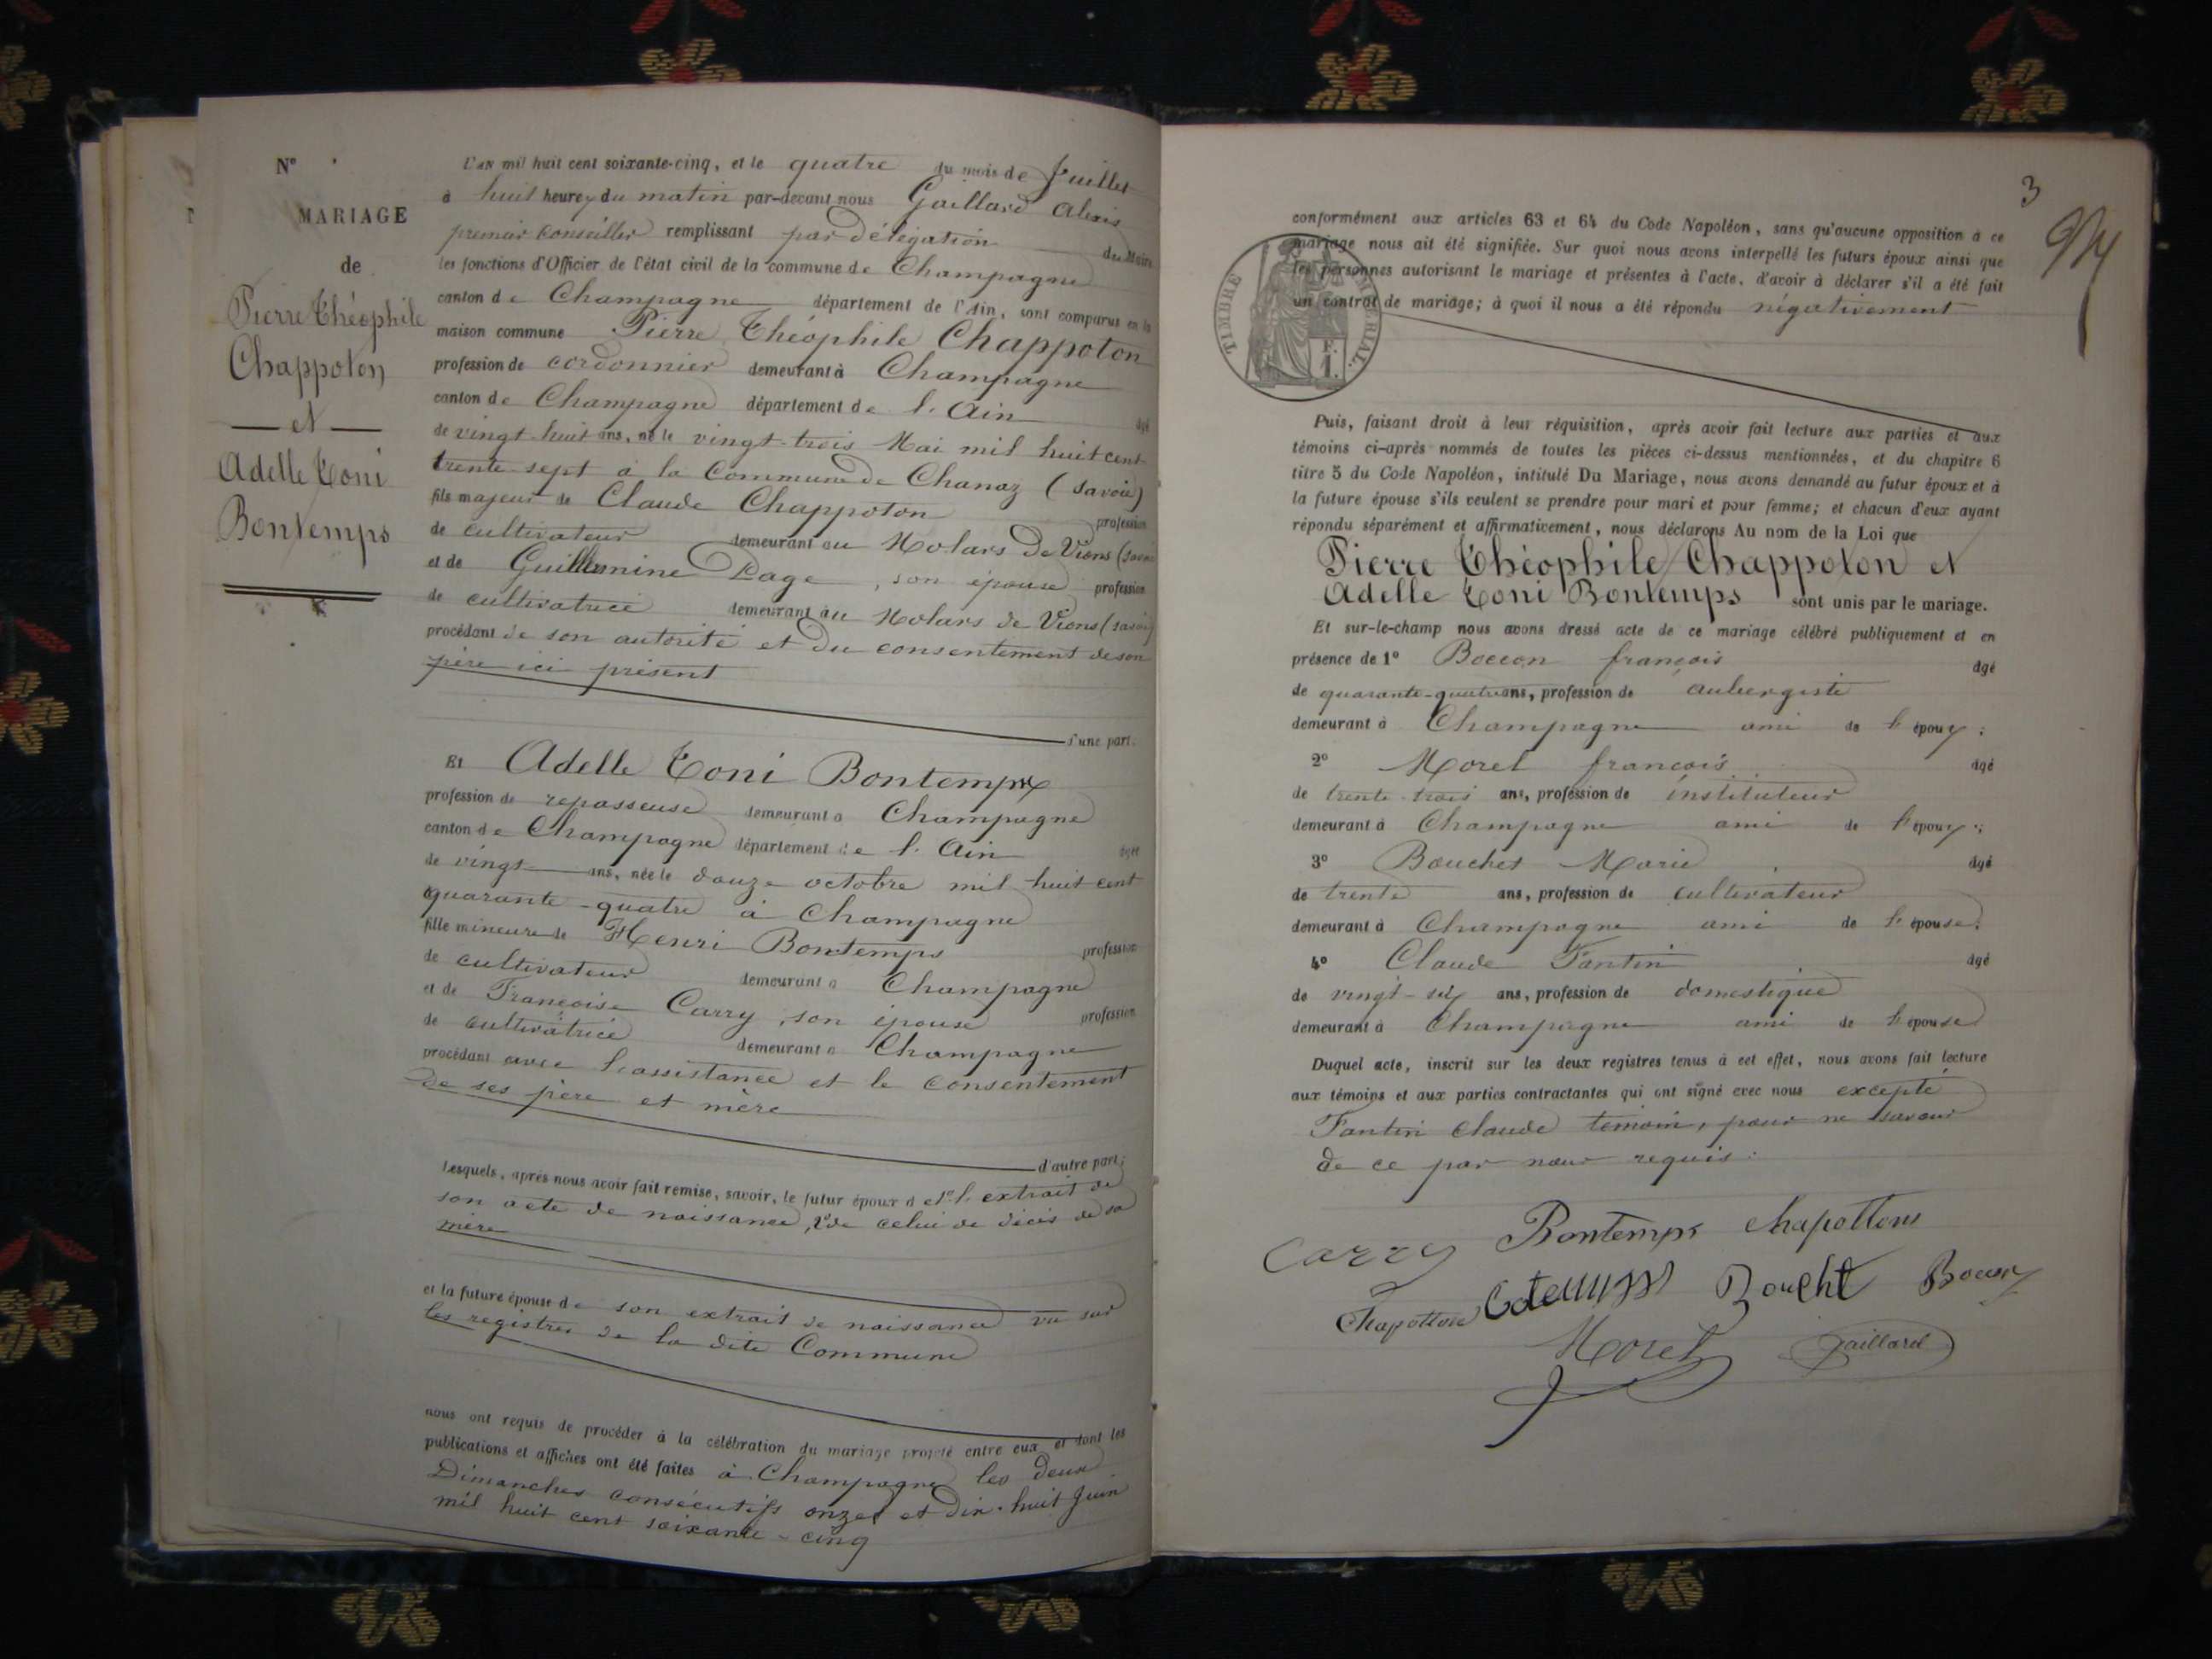 N°
MARIAGE
de
Pierre Théophile
Chappoton
et
Adelle Toni
Bontemps
L'AN mil huit cent soixante-cinq, et le quatre du mois de Juillet
à huit heures du matin par-devant nous Gaillard Alexis
premier conseiller remplissant par délégation du Maire
les fonctions d'Officier de l'état civil de la commune de Champagne
canton de Champagne département de l'Ain, sont comparus en la
maison commune Pierre Théophile Chappoton
profession de cordonnier demeurant à Champagne
canton de Champagne département de l'Ain âgé
de vingt-huit ans, né le vingt-trois Mai mil huit cent
trente-sept à la Commune de Chanaz (Savoie)
fils majeur de Claude Chappoton profession
de cultivateur demeurant au Molars De Vions (Savoie
et de Guillermine Page, son épouse profession
de cultivatrice demeurant au Molars de Vions (Savoie)
procédant de son autorité et du consentement de son
père ici présent
d'une part.
Et Adelle Toni Bontemps
profession de repasseuse demeurant à Champagne
canton de Champagne département de l'Ain âgée
de vingt ans, née le douze octobre mil huit cent
quarante-quatre à Champagne
fille mineure de Henri Bontemps profession
de cultivateur demeurant à Champagne
et de Françoise Carry, son épouse profession
de cultivatrice demeurant à Champagne
procédant avec l'assistance et le consentement
de ses père et mère
d'autre part;
Lesquels, après nous avoir fait remise, savoir, le futur époux d e 1° l'extrait de
son acte de naissance, 2° de celui de décès de sa
mère
et la future épouse de son extrait de naissance vu sur
les registres de la dite Commune
nous ont requis de procéder à la célébration du mariage projeté entre eux et dont les
publications et affiches ont été faites à Champagne les deux
Dimanches consécutifs onze et dix-huit Juin
mil huit cent soixante-cinq
3
conformément aux articles 63 et 64 du Code Napoléon, sans qu'aucune opposition à ce
mariage nous ait été signifiée. Sur quoi nous avons interpellé les futurs époux ainsi que
les personnes autorisant le mariage et présentes à l'acte, d'avoir à déclarer s'il a été fait
un contrat de mariage; à quoi il nous a été répondu négativement
TIMBRE IMPÉRIAL.
F.
1.
Puis, faisant droit à leur réquisition, après avoir fait lecture aux parties et aux
témoins ci-après nommés de toutes les pièces ci-dessus mentionnées, et du chapitre 6
titre 5 du Code Napoléon, intitulé Du Mariage, nous avons demandé au futur époux et à
la future épouse s'ils veulent se prendre pour mari et pour femme; et chacun d'eux ayant
répondu séparément et affirmativement, nous déclarons Au nom de la Loi que
Pierre Théophile Chappoton et
Adelle Toni Bontemps sont unis par le mariage.
Et sur-le-champ nous avons dressé acte de ce mariage célébré publiquement et en
présence de 1° Boccon françois âgé
de quarante-quatre ans, profession de aubergiste
demeurant à Champagne ami de l'époux;
2° Morel françois âgé
de trente-trois ans, profession de instituteur
demeurant à Champagne ami de l'époux;
3° Bouchet Marie âgé
de trente ans, profession de cultivateur
demeurant à Champagne ami de l'épouse;
4° Claude Fantin âgé
de vingt-six ans, profession de domestique
demeurant à Champagne ami de l'épouse
Duquel acte, inscrit sur les deux registres tenus à cet effet, nous avons fait lecture
aux témoins et aux parties contractantes qui ont signé avec nous excepté
Fantin Claude témoin, pour ne savoir
de ce par nous requis.
Carry Bontemps Chapottons
Chapotton Boucht Boccon
Morel Gaillard